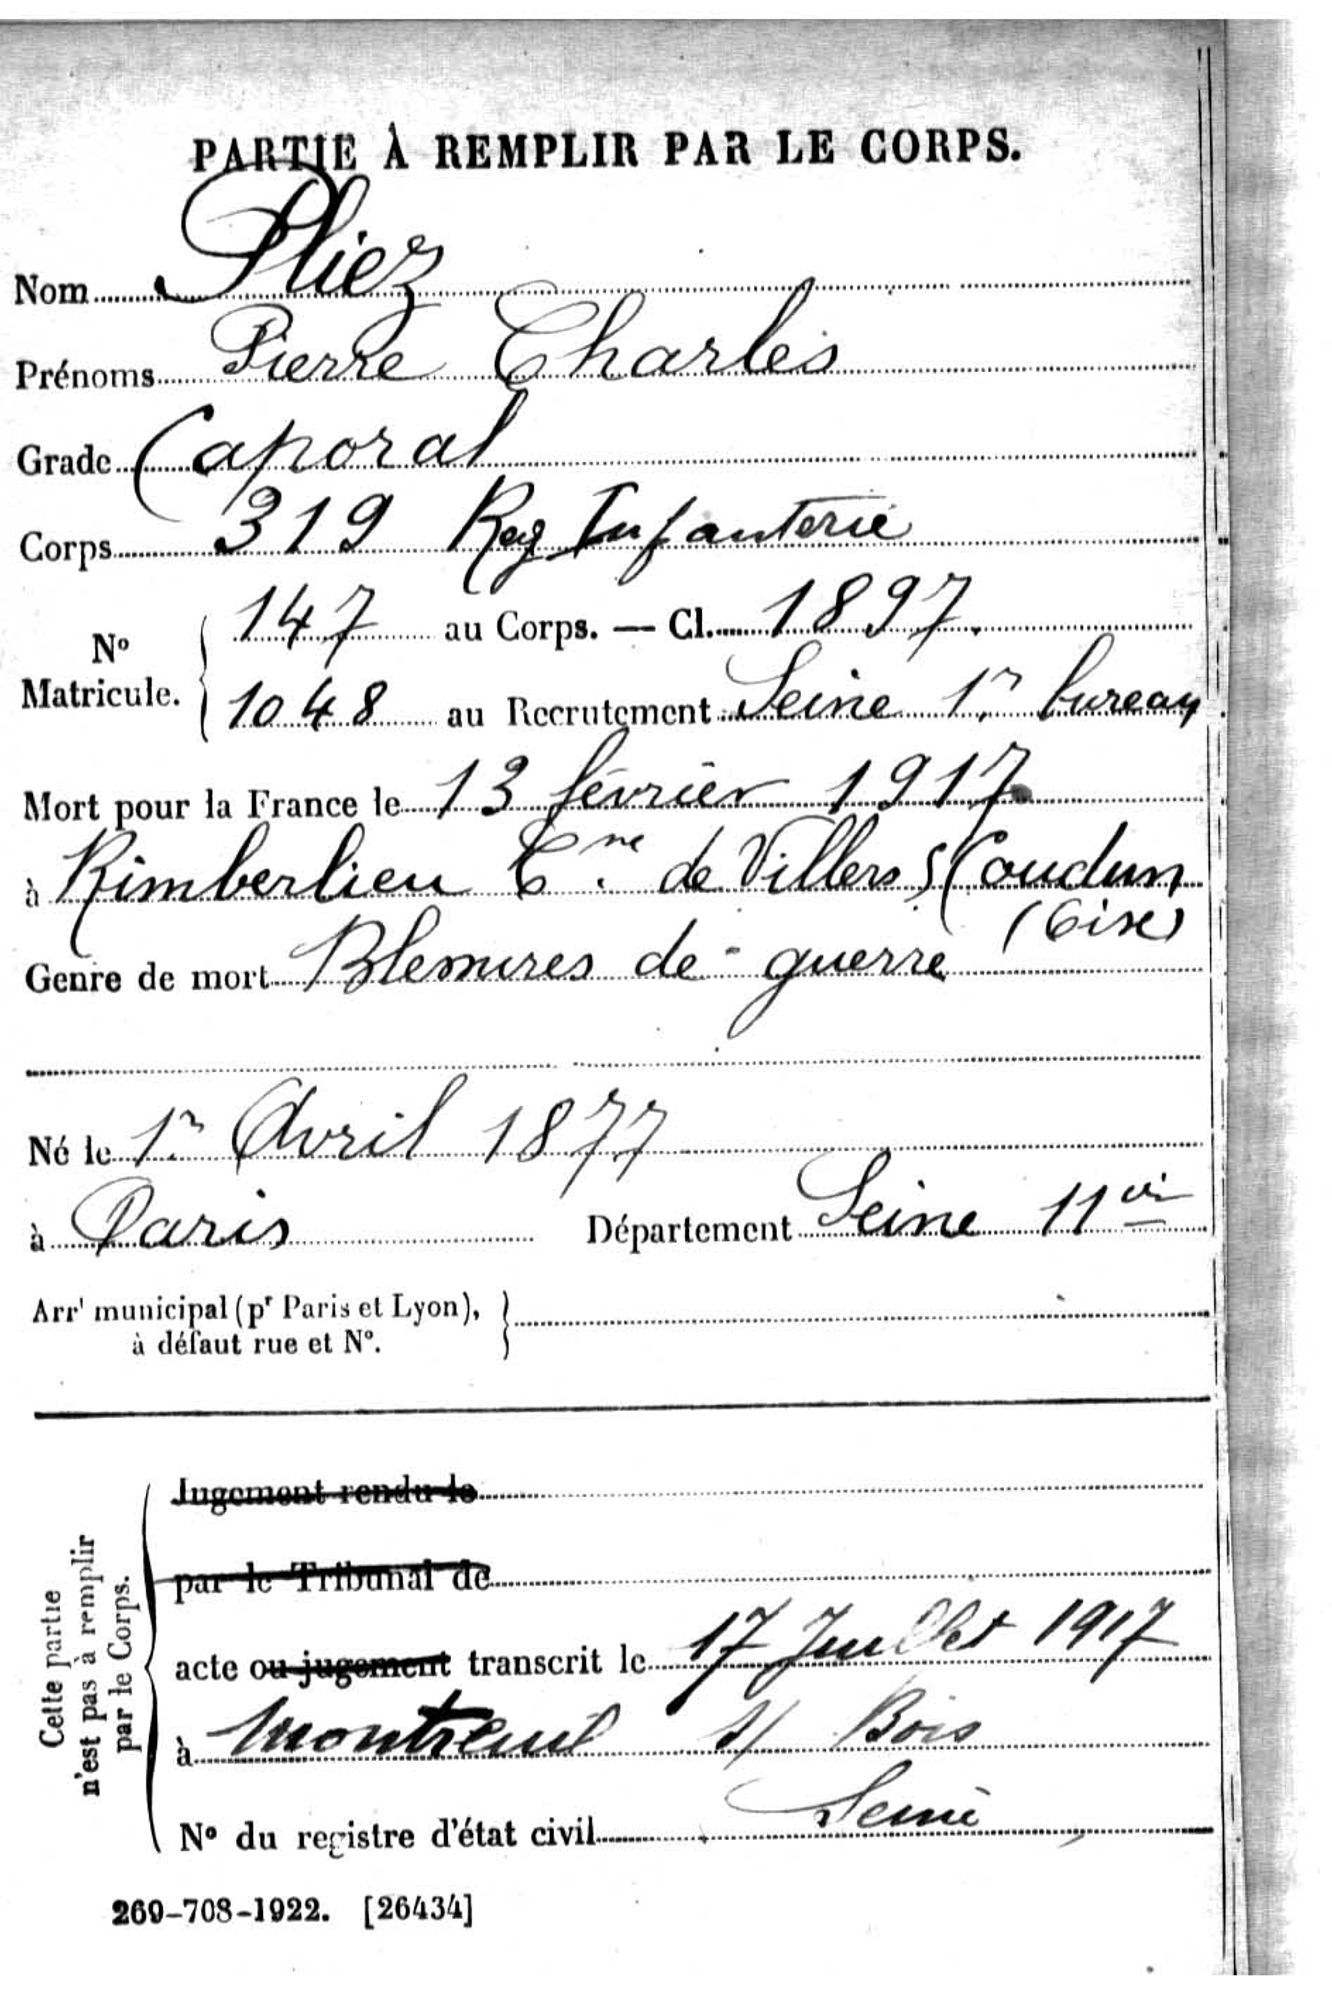 PARTIE À REMPLIR PAR LE CORPS.
Nom Pliez
Prénoms Pierre Charles
Grade Caporal
Corps 319 Reg Infanterie
N° Matricule. { 147 au Corps. — Cl. 1897.
1048 au Recrutement Seine 1r bureau
Mort pour la France le 13 février 1917
à Rimberlieu Cne de Villers S/Coudun
(Oise)
Genre de mort Blessures de guerre
Né le 1r Avril 1877
à Paris Département Seine 11e
Arrt municipal (pr Paris et Lyon),
à défaut rue et N°.
Cette partie
n'est pas à remplir
par le Corps.
Jugement rendu le
par le Tribunal de
acte ou jugement transcrit le 17 Juillet 1917
à Montreuil s/ Bois
Seine
N° du registre d'état civil
269-708-1922. [26434]